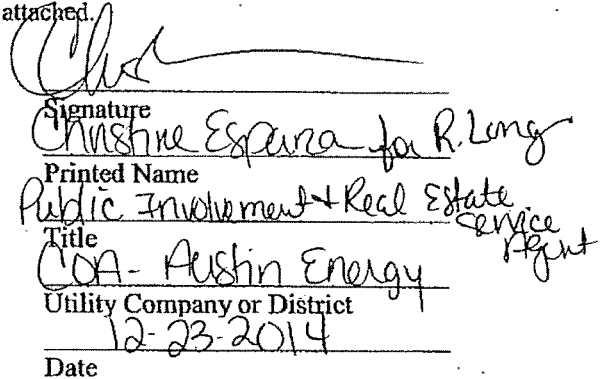 attached.
Signature
Christine Espana for R. Long
Printed Name
Public Involvement & Real Estate
Service
Agent
Title
COA - Austin Energy
Utility Company or District
12-23-2014
Date